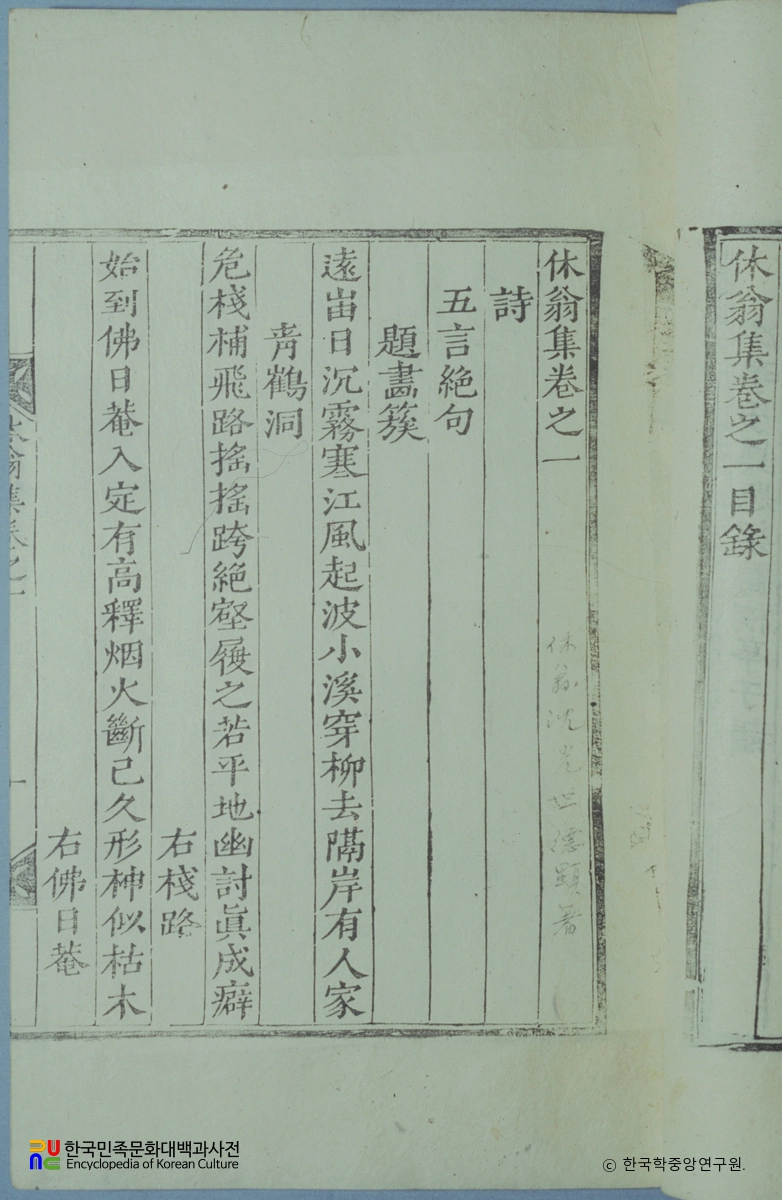 休翁集卷之一目錄
休翁集卷之一
休翁沈光世德顯著
詩
五言絕句
題畵簇
遠峀日沉霧寒江風起波小溪穿柳去隔岸有人家
靑鶴洞
危棧補飛路搖搖跨絕壑履之若平地幽討眞成癖
右棧路
始到佛日菴入定有高釋烟火斷已久形神似枯木
右佛日菴
休翁集卷之一
一
한국민족문화대백과사전
Encyclopedia of Korean Culture
ⓒ 한국학중앙연구원.